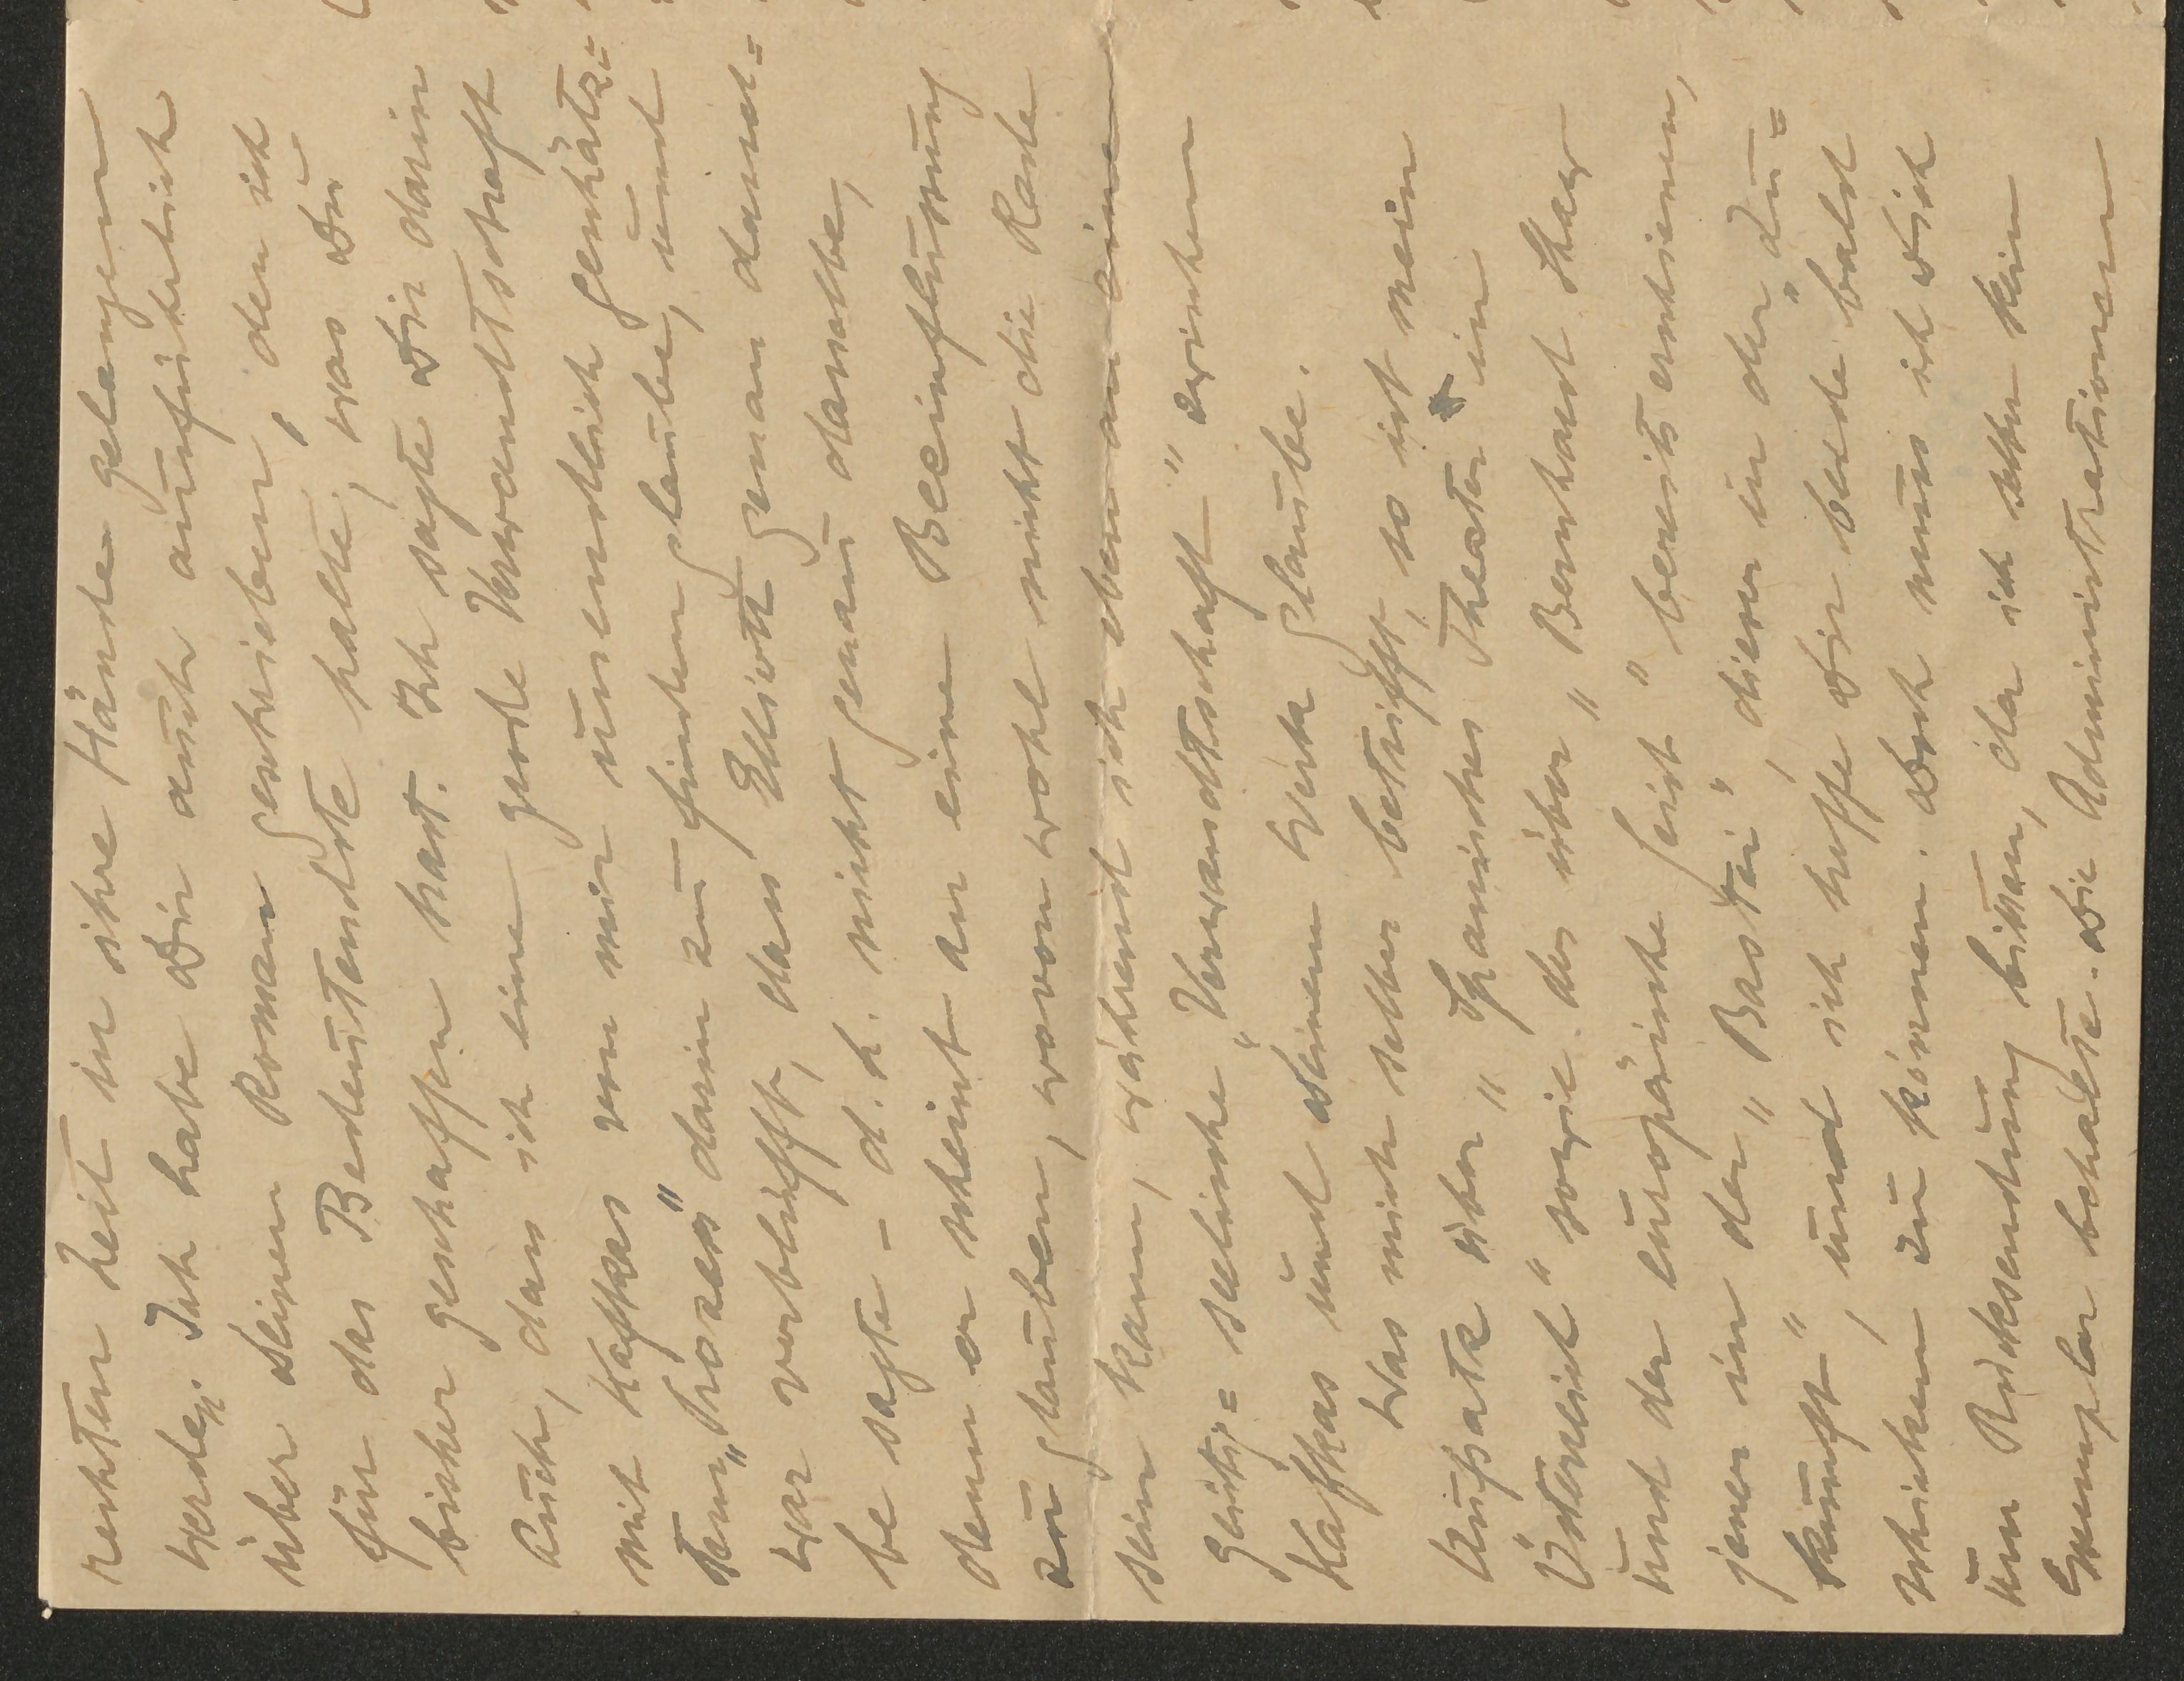 rechten Zeit in ihre Hände gelangen
werden. Ich habe Dir auch ausführlich
über Deinen Roman geschrieben, den ich
für das Bedeutendste halte, was Du
bisher geschaffen hast. Ich sagte Dir darin
auch, dass ich eine große Verwandtschaft
mit Kafkas von mir unendlich geschätz=
tem „Prozess" darin zu finden glaube, und
war verblüfft, dass Eliott genau dassel=
be sagte – d. h. nicht genau dasselbe,
denn er scheint an eine Beeinflussung
zu glauben, wovon wohl nicht die Rede
sein kann, während ich eben an eine
geistig= seelische „Verwandtschaft" zwischen
Kafkas und Deinem Werk glaube.
Was mich selber betrifft, so ist mein
Aufsatz über „Spanisches Theater in
Österreich" sowie der über „Bernhard Shaw
und der europäische Geist" bereits erschienen,
jener in der „Bastei", dieser in der „Zu=
kunft", und ich hoffe Dir beide bald
schicken zu können. Doch muss ich Dich
um Rücksendung bitten, da ich sonst kein
Exemplar behalte. Die Administrationen